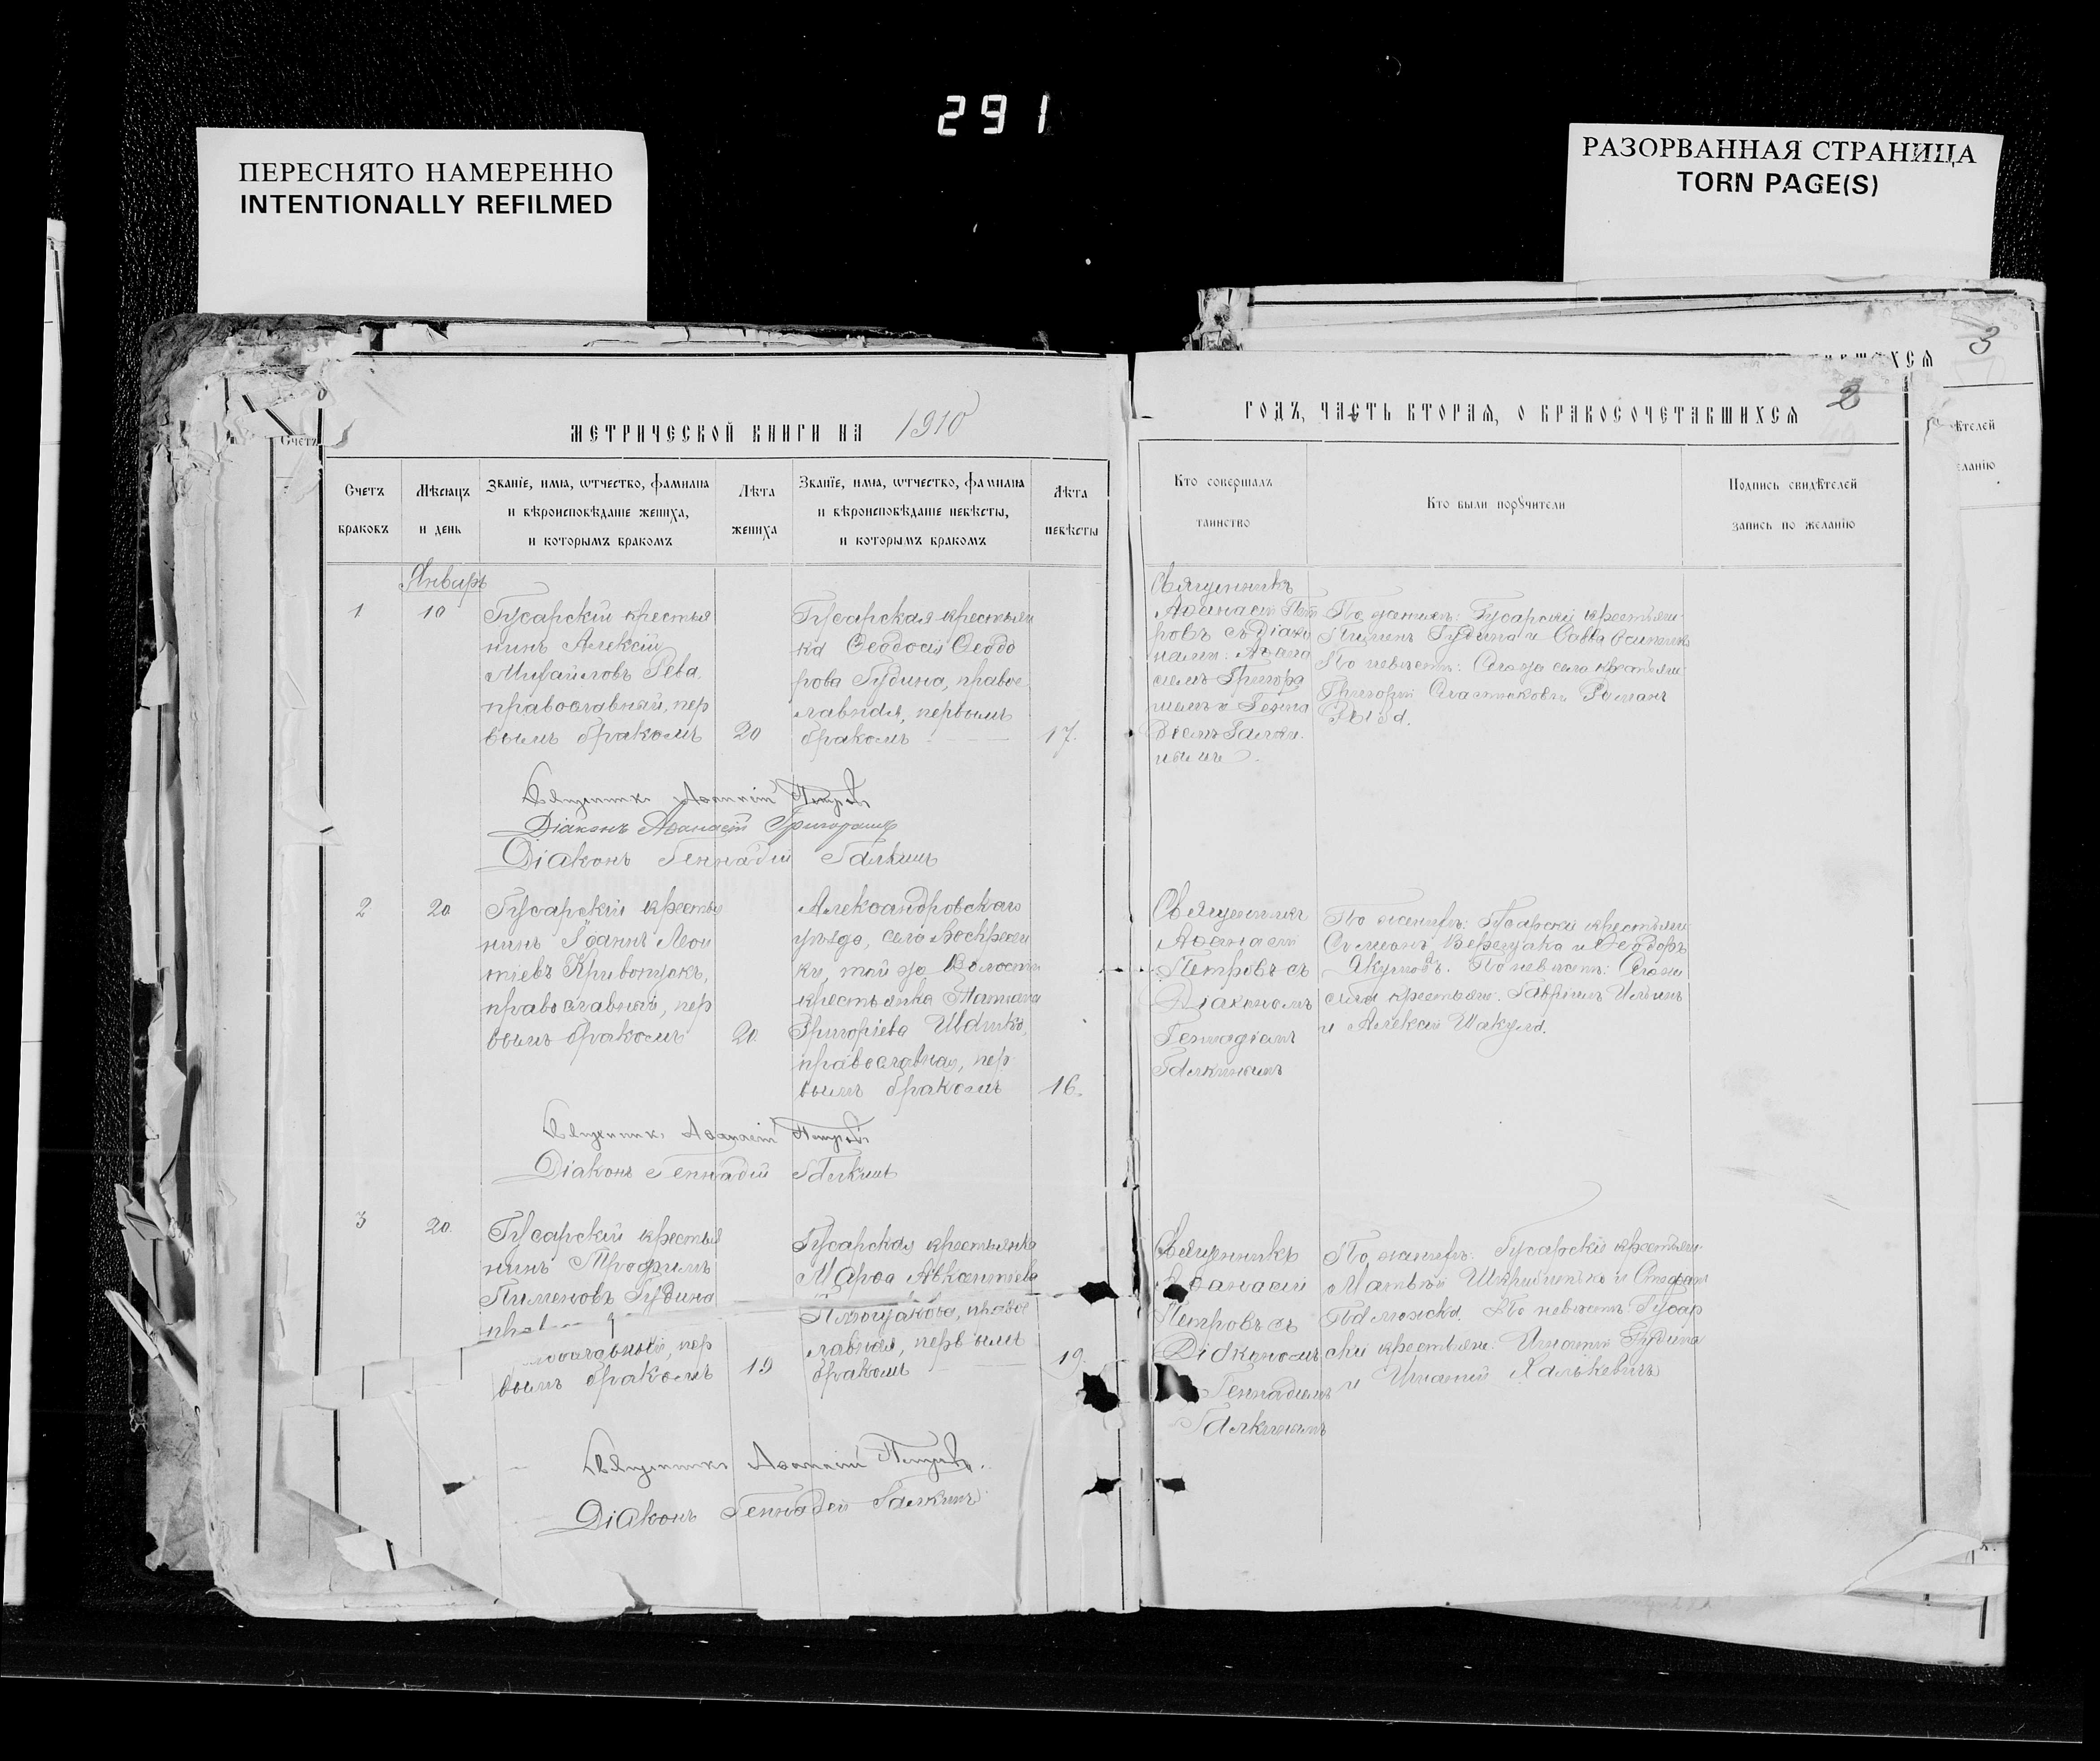 291
ПЕРЕСНЯТО НАМЕРЕННО
INTENTIONALLY REFILMED
РАЗОРВАННАЯ СТРАНИЦА
TORN PAGE(S)
3
ХСЯ
2
МЕТРИЧЕСКОЙ КНИГИ НА 1910
ГОДЪ, ЧАСТЬ ВТОРАЯ, О БРАКОСОЧЕТАВШИХСЯ
Счетъ
ѣтелей
еланію
Счетъ
браковъ
Мѣсяцъ
и день
Званіе, имя, отчество, фамилия
и вѣроисповѣданіе жениха,
и которымъ бракомъ
Лѣта
жениха
Званіе, имя, отчество, фамилия
и вѣроисповѣданіе невѣсты,
и которымъ бракомъ
Лѣта
невѣсты
Кто совершалъ
таинство
Кто были поручители
Подпись свидѣтелей
запись по желанію
Январь
1
10
Гусарскій крестья
нинъ Алексій
Михайловъ Рева,
православный, пер
вымъ бракомъ
20
Гусарская крестьян
ка Ѳеодосія Ѳеодо
рова Гудина, правос
лавная, первымъ
бракомъ
17.
Священникъ
Аѳанасій Пет
ровъ съ діако
нами: Аѳана
сіемъ Григора
шемъ и Генна
діемъ Галки
нымъ
По женихѣ: Гусарскіе крестьяне
Пименъ Гудина и Савва
По невѣстѣ: Того же села крестьяне
Григорій и Романъ
Священникъ Аѳанасій Петровъ
Діаконъ Аѳанасій Григорашъ
Діаконъ Геннадій Галкинъ
2
20
Гусарскій крестья
нинъ Іоаннъ Леон
тіевъ Кривошукъ,
православный, пер
вымъ бракомъ
20.
Александровскаго
уѣзда, села Воскресен
ки, той же волости
крестьянка Татіана
Григоріева Ивдшко,
православная, пер
вымъ бракомъ
16.
Священникъ
Аѳанасій
Петровъ съ
Діакономъ
Геннадіемъ
Галкинымъ
По женихѣ: Гусарскіе крестьяне
Симеонъ Верещака и Ѳеодоръ
Якуповъ. По невѣстѣ: Того же
села крестьяне: Гавріилъ Ильинъ
и Алексій Шакула.
Священникъ Аѳанасій Петровъ
Діаконъ Геннадій Галкинъ
3
20.
Гусарскій крестья
нинъ Трофимъ
Пименовъ Гудина
вославный, пер
вымъ бракомъ
19
Гусарская крестьянка
Марѳа Авксентіева
Плющакова, правос
лавная, первымъ
бракомъ
19.
Священникъ
Аѳанасій
Петровъ съ
Діакономъ
Геннадіемъ
Галкинымъ
По женихѣ: Гусарскіе крестьяне
Матвѣй и Стефанъ
По невѣстѣ Гусар
скіе крестьяне: Игнатій Гудина
и Игнатій Халькевичъ
Священникъ Аѳанасій Петровъ.
Діаконъ Геннадій Галкинъ